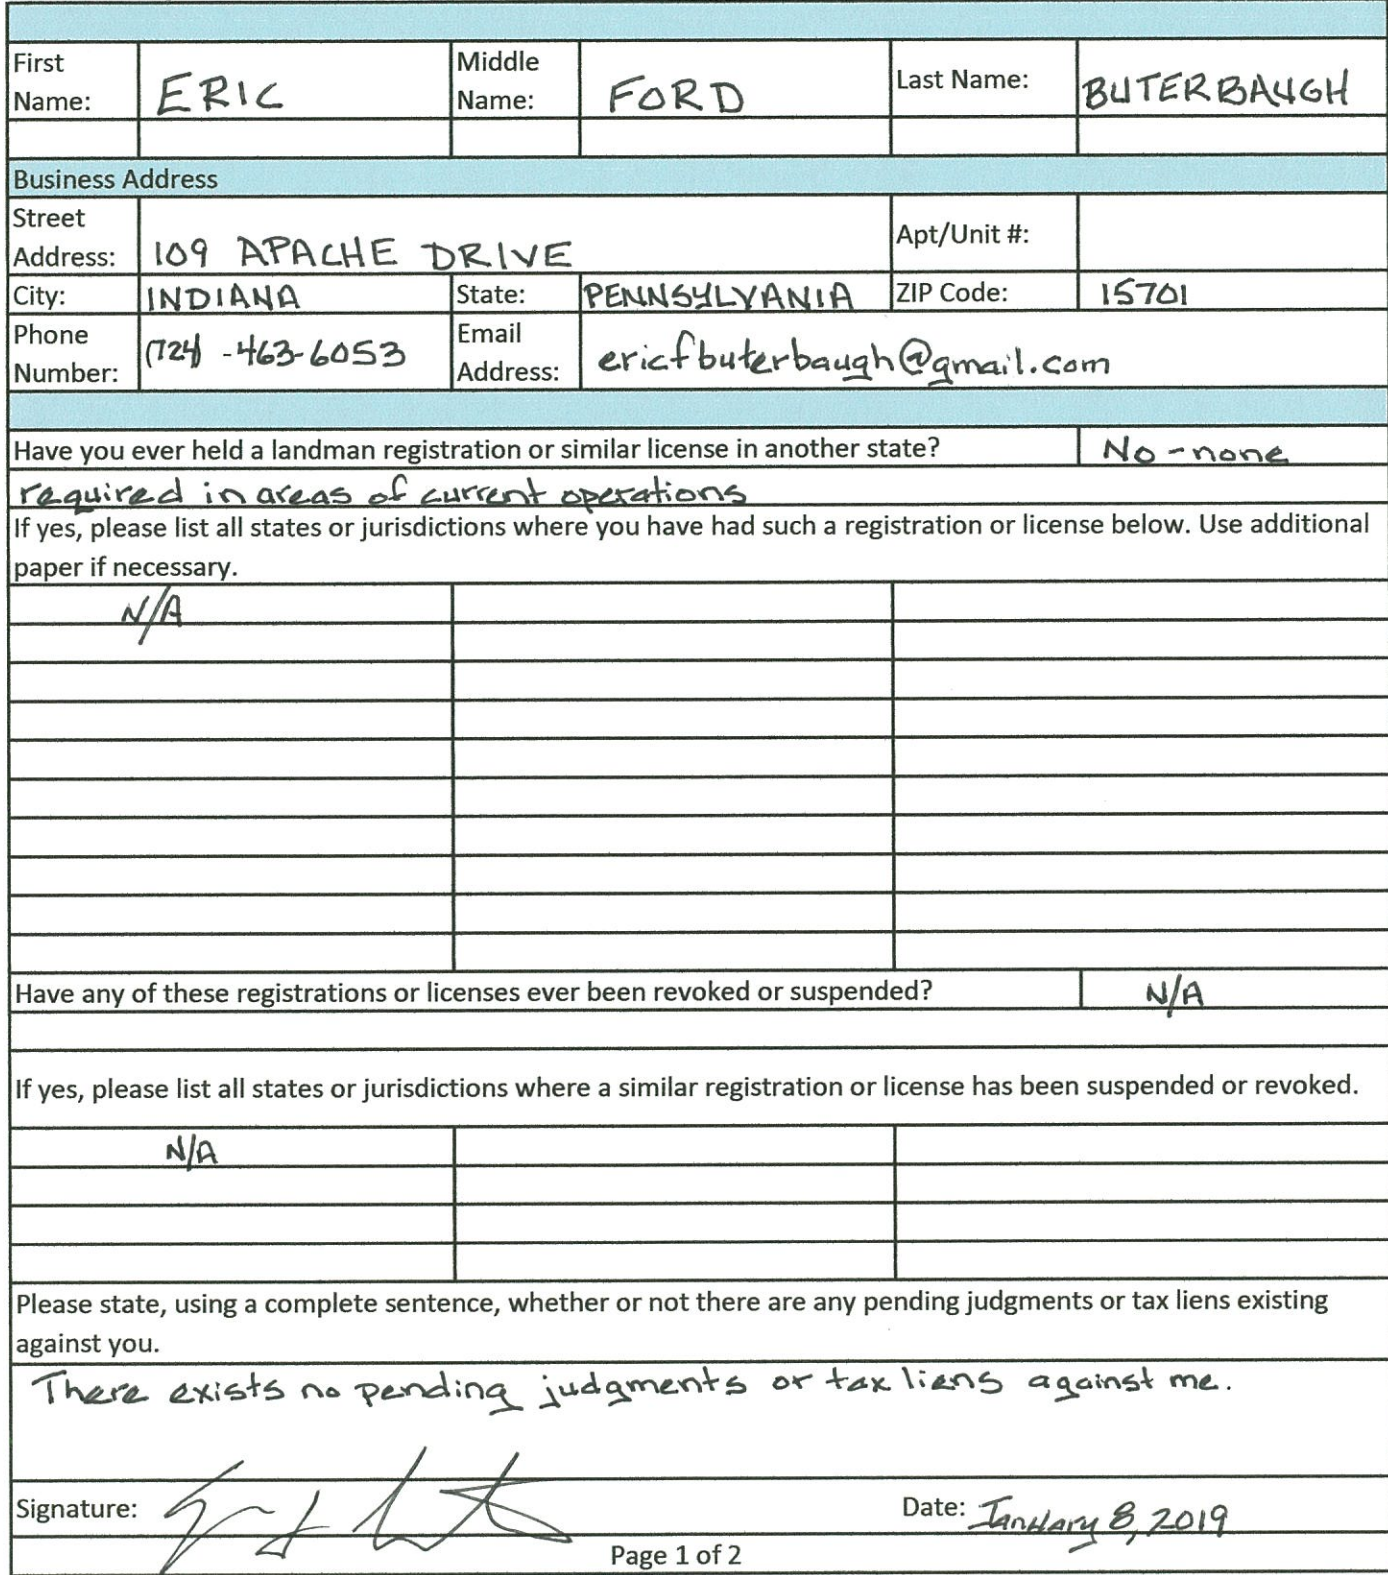 First Name: ERIC Middle Name: FORD Last Name: BUTERBAUGH
Business Address
Street Address: 109 APACHE DRIVE Apt/Unit #:
City: INDIANA State: PENNSYLVANIA ZIP Code: 15701
Phone Number: (724) -463-6053 Email Address: ericfbuterbaugh@gmail.com
Have you ever held a landman registration or similar license in another state? No - none
required in areas of current operations
If yes, please list all states or jurisdictions where you have had such a registration or license below. Use additional
paper if necessary.
N/A
Have any of these registrations or licenses ever been revoked or suspended? N/A
If yes, please list all states or jurisdictions where a similar registration or license has been suspended or revoked.
N/A
Please state, using a complete sentence, whether or not there are any pending judgments or tax liens existing
against you.
There exists no pending judgments or tax liens against me.
Signature: Date: January 8, 2019
Page 1 of 2